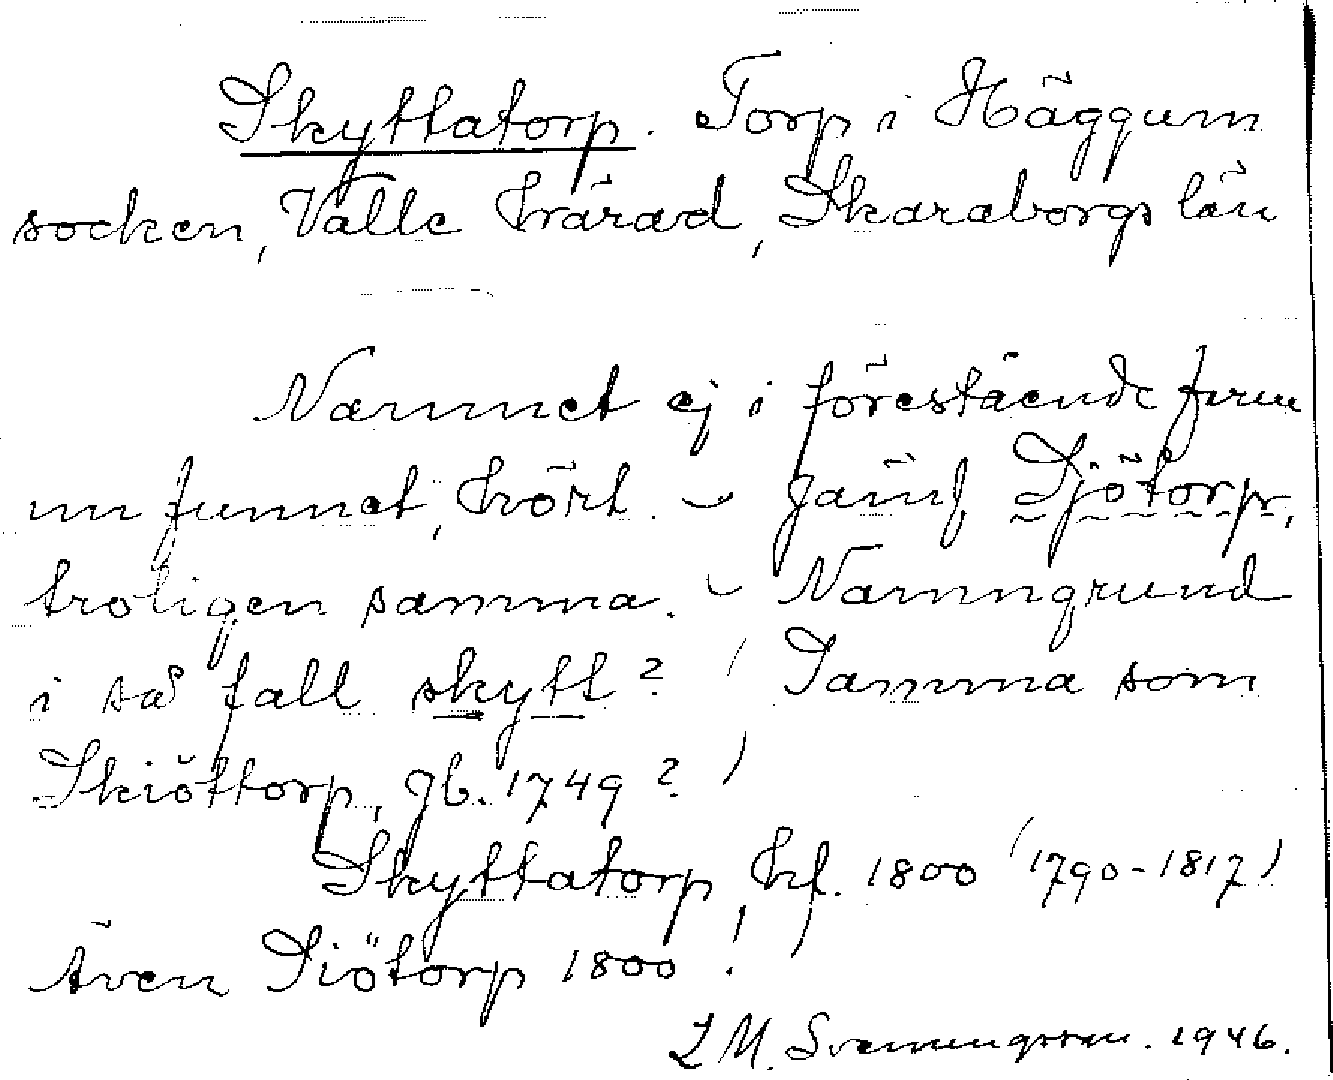 Skyttatorp. Torp i Häggum
socken, Valle härad, Skaraborgs län
Namnet ej i förestående form
nu funnet, hört. – Jämf. Sjötorp,
troligen samma. – Namngrund
i så fall skytt? (Samma som
Skiöttorp, Jb. 1749?)
Skyttatorp, hf. 1800 (1790-1817)
Även Siötorp 1800!
L M. Svenungsson. 1946.